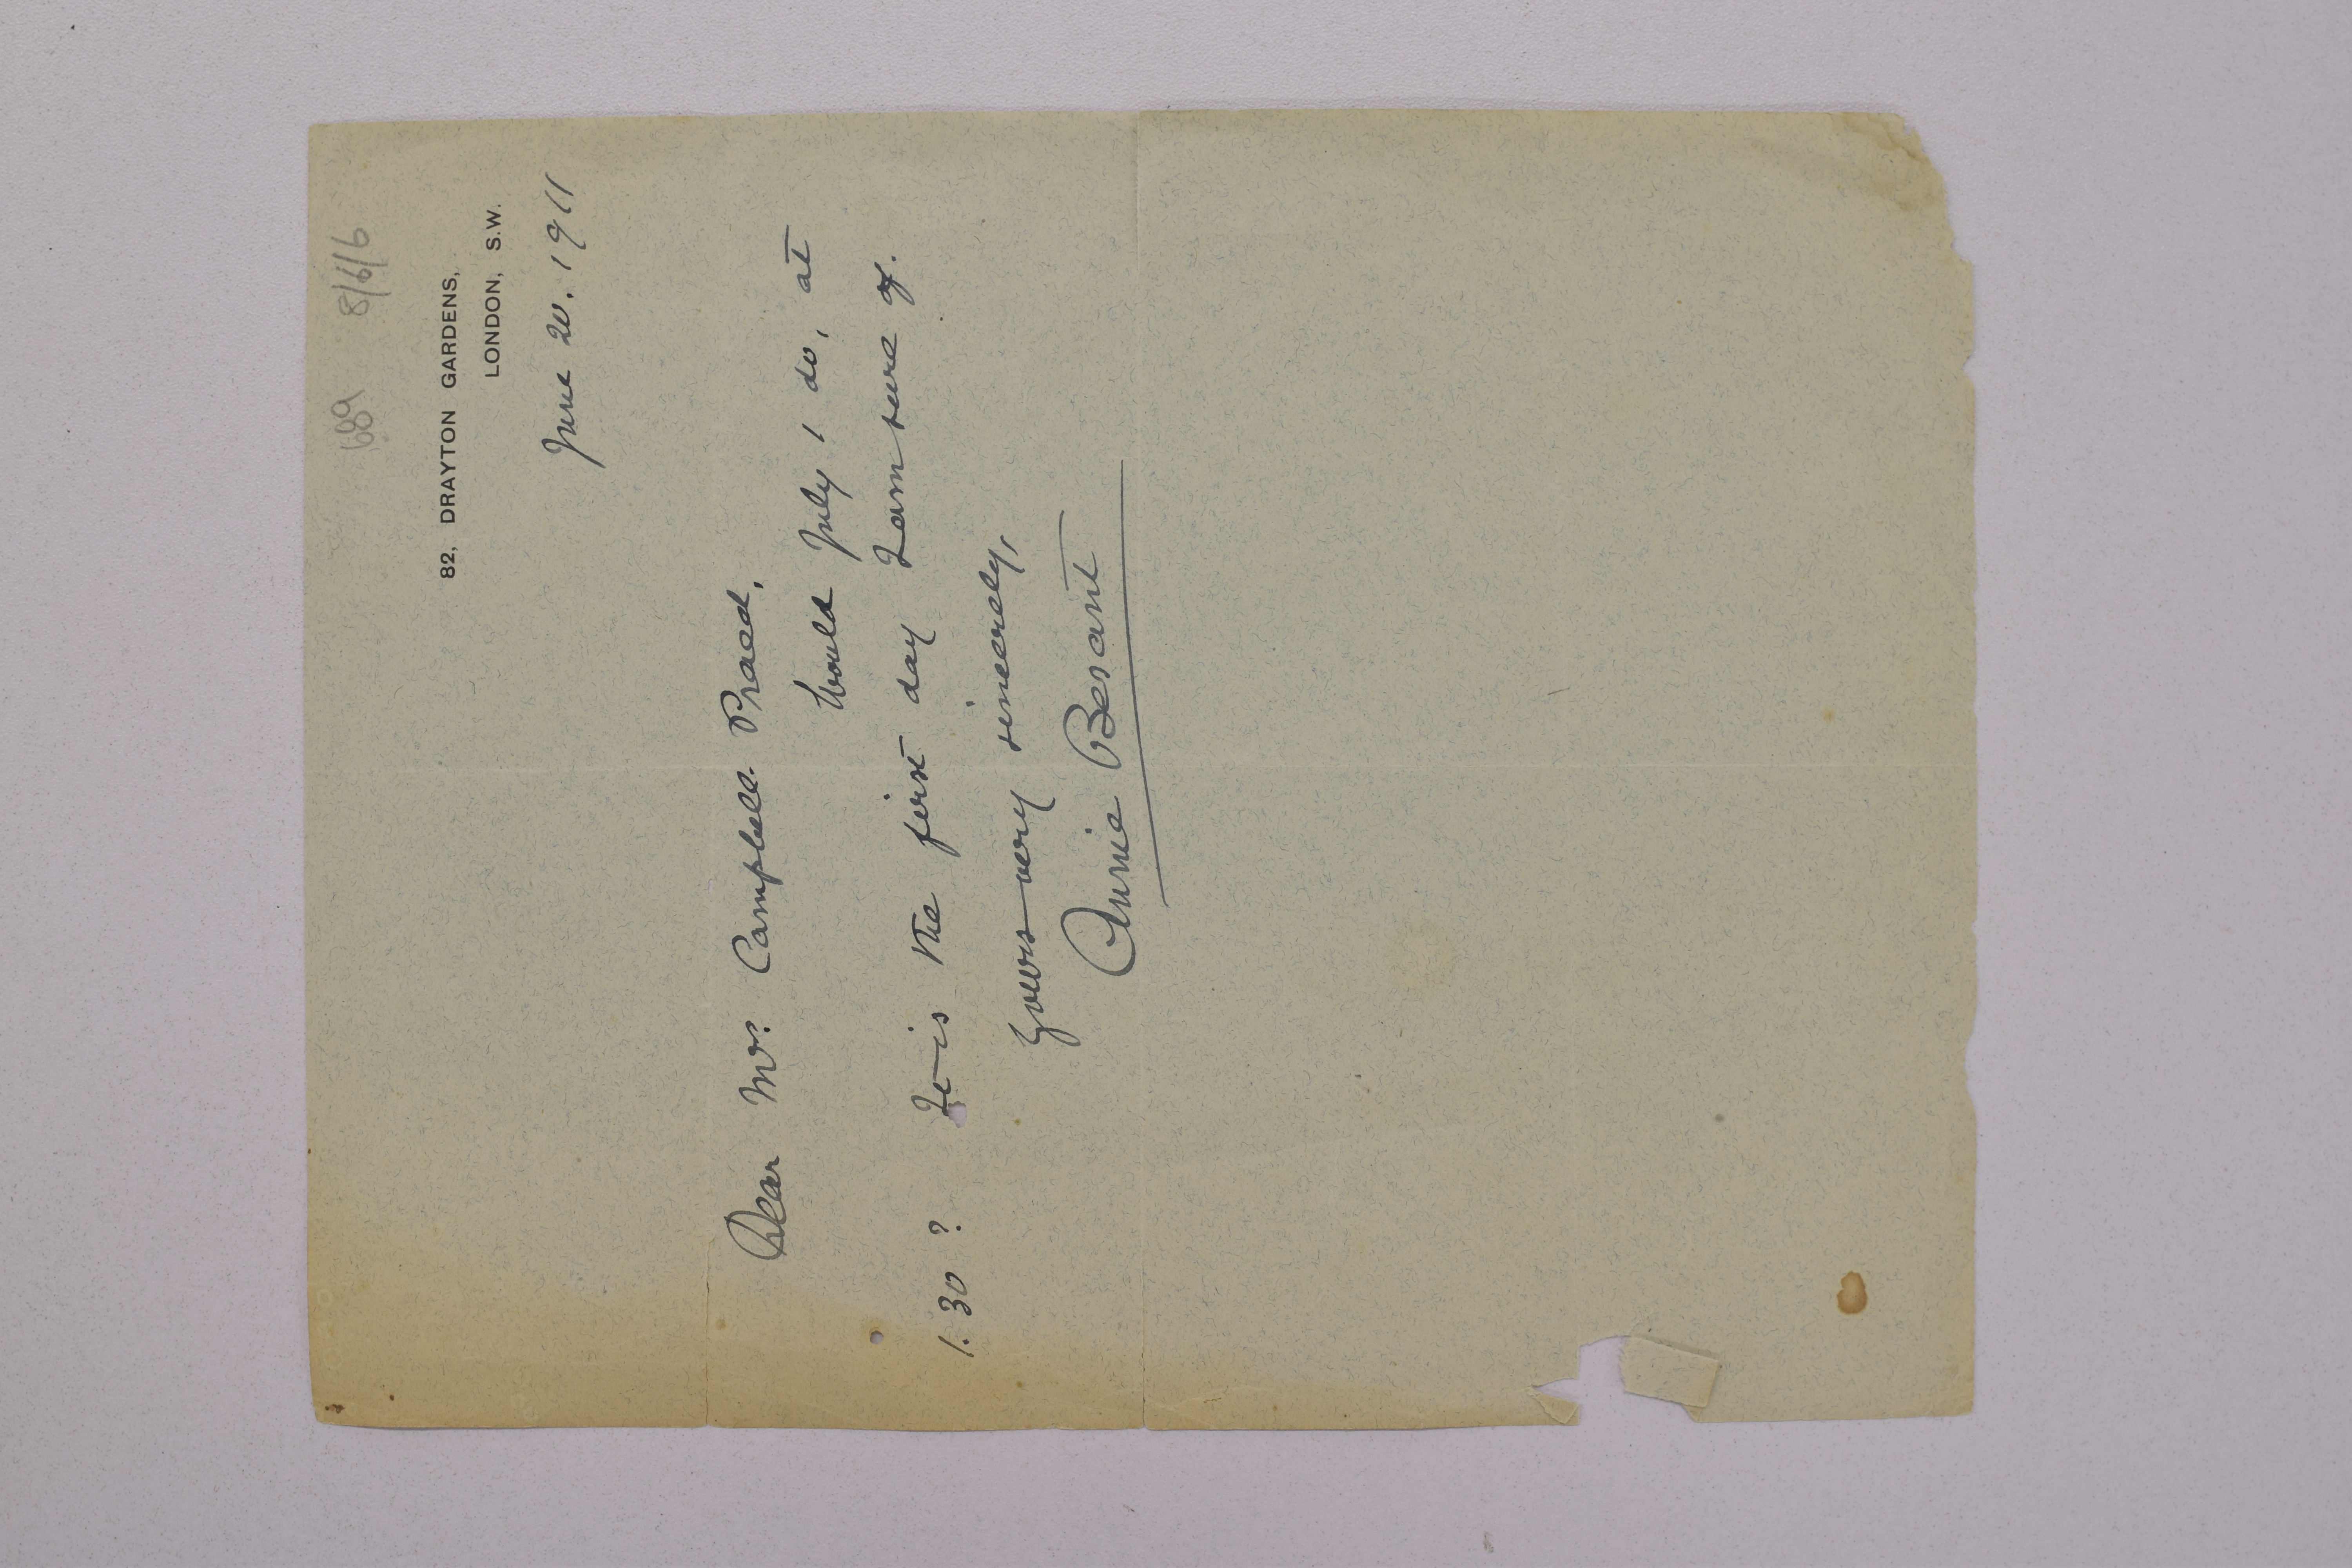 689 8/6/6
82, DRAYTON GARDENS,
LONDON, S.W.
June 20. 1911
Dear Mrs. Campbell Praed,
Would July 1 do, at
1.30? It is the first day I am sure of.
Yours very sincerely,
Annie Besant